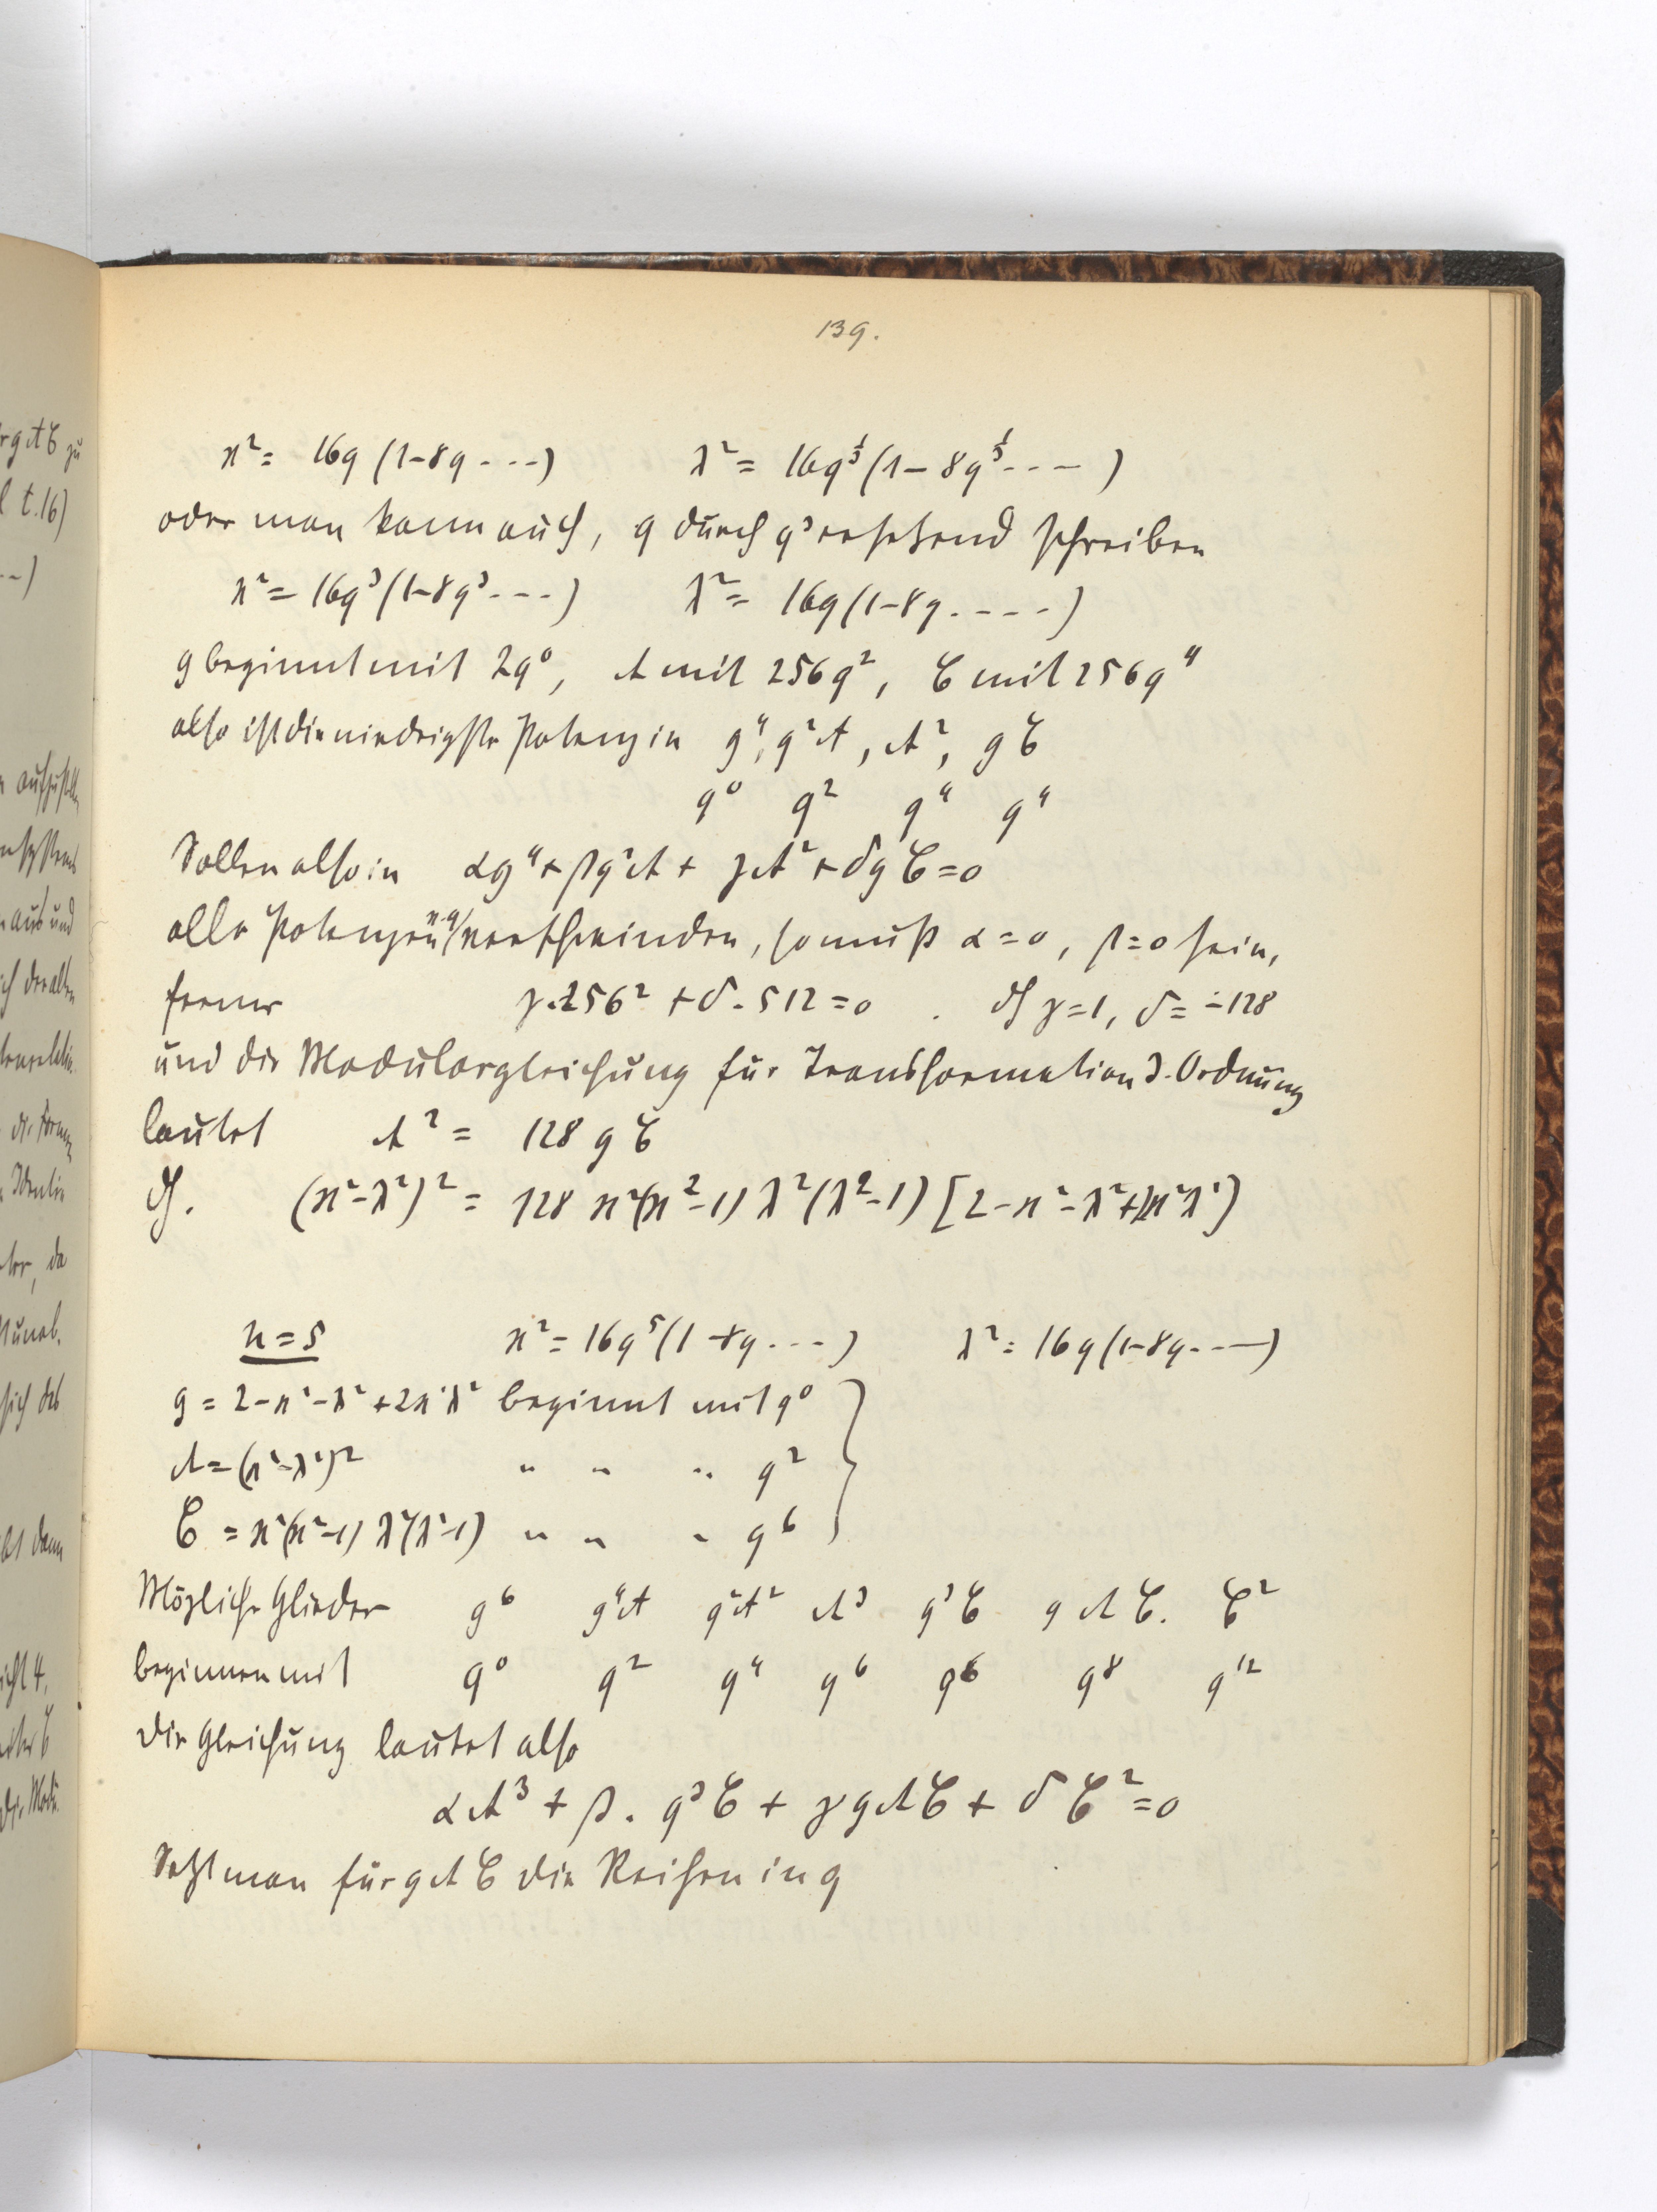 139.
ϰ² = 16q (1-8q ---)  λ² = 16q^⅓ (1-8q^⅓ --- )
oder man kann auch, q durch q³ ersetzend schreiben
ϰ² = 16q³(1-8q³---)  λ² = 16q(1-8q.----)
g beginnt mit 2q⁰, A mit 256q², C mit 256q⁴
also ist die niedrigste Potenz in g⁴, g²A, A², gC
q⁰ q² q⁴ q⁴
Sollen also in αg⁴ + βg²A + γA² + δgC = 0
alle Potenzen v. q verschwinden, so muß α=0, β=0 sein,
ferner γ.256² + δ.512 = 0 . dh γ=1, δ= -128
und die Modulargleichung für Transformation 3. Ordnung
lautet A² = 128 gC
dh. (ϰ²-λ²)² = 128 ϰ²(ϰ²-1) λ²(λ²-1) [2-ϰ²-λ²+2ϰ²λ²]
n=5 ϰ² = 16q⁵(1-8q---) λ² = 16q(1-8q---)
g = 2-ϰ²-λ²+2ϰ²λ² beginnt mit q⁰
A = (ϰ²-λ²)² " " " q²
C = ϰ²(ϰ²-1) λ²(λ²-1) " " " q⁶
Mögliche Glieder g⁶ g⁴A g²A² A³ g³C gAC. C²
beginnen mit q⁰ q² q⁴ q⁶ q⁶ q⁸ q¹²
Die Gleichung lautet also
αA³ + β. g³C + γgAC + δC² = 0
Setzt man für g A C die Reihen in q